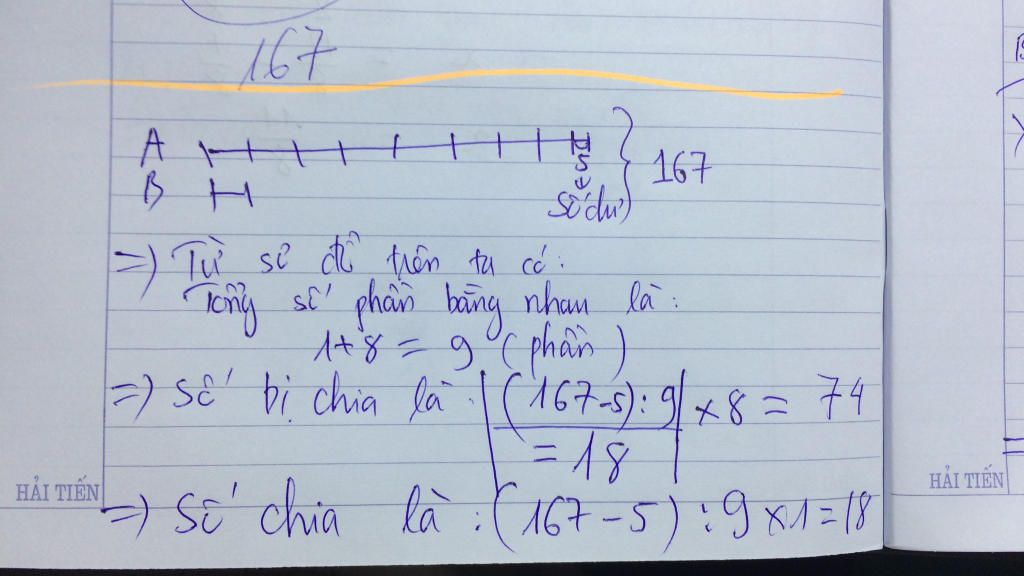 167
A
B
5
số dư
167
=) Từ sơ đồ trên ta có:
Tổng số phần bằng nhau là:
1+8 = 9 (phần)
=) Số bị chia là: (167-5):9 × 8 = 74
= 18
HẢI TIẾN
HẢI TIẾN
=) Số chia là: (167-5):9×1=18